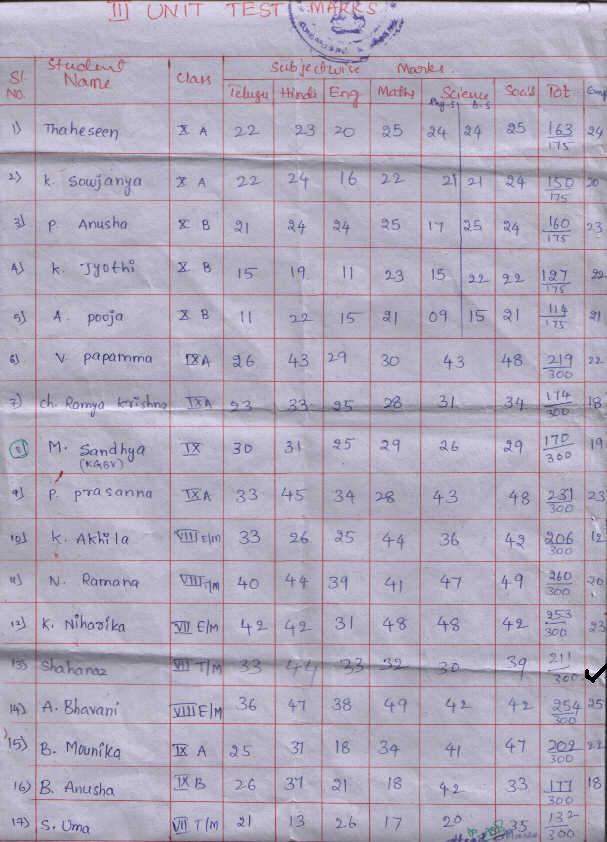 III UNIT TEST MARKS
Sl. No. Student Name Class Subjectwise Marks.
Telugu Hindi Eng Maths Science Soci's Tot
Phy.S B.S
1) Thaheseen X A 22 23 20 25 24 24 25 163/175 24
2) K. Sowjanya X A 22 24 16 22 21 21 24 150/175 20
3) P. Anusha X B 21 24 24 25 17 25 24 160/175 23
4) K. Jyothi X B 15 19 11 23 15 22 22 127/175 22
5) A. pooja X B 11 22 15 21 09 15 21 114/175 21
6) V. papamma IX A 26 43 29 30 43 48 219/300 22
7) Ch. Ramya Krishna IX A 23 33 25 28 31 34 174/300 18
8) M. Sandhya (KGBV) IX 30 31 25 29 26 29 170/300 19
9) P. prasanna IX A 33 45 34 28 43 48 231/300 23
10) K. Akhila VIII E/M 33 26 25 44 36 42 206/300 12
11) N. Ramana VIII T/M 40 44 39 41 47 49 260/300 20
12) K. Niharika VII E/M 42 42 31 48 48 42 253/300 23
13) Shahanaz VII T/M 33 44 33 32 30 39 211/300
14) A. Bhavani VIII E/M 36 47 38 49 42 42 254/300 25
15) B. Mounika IX A 25 37 18 34 41 47 202/300 22
16) B. Anusha IX B 26 37 21 18 42 33 177/300 18
17) S. Uma VII T/M 21 13 26 17 20 35 132/300